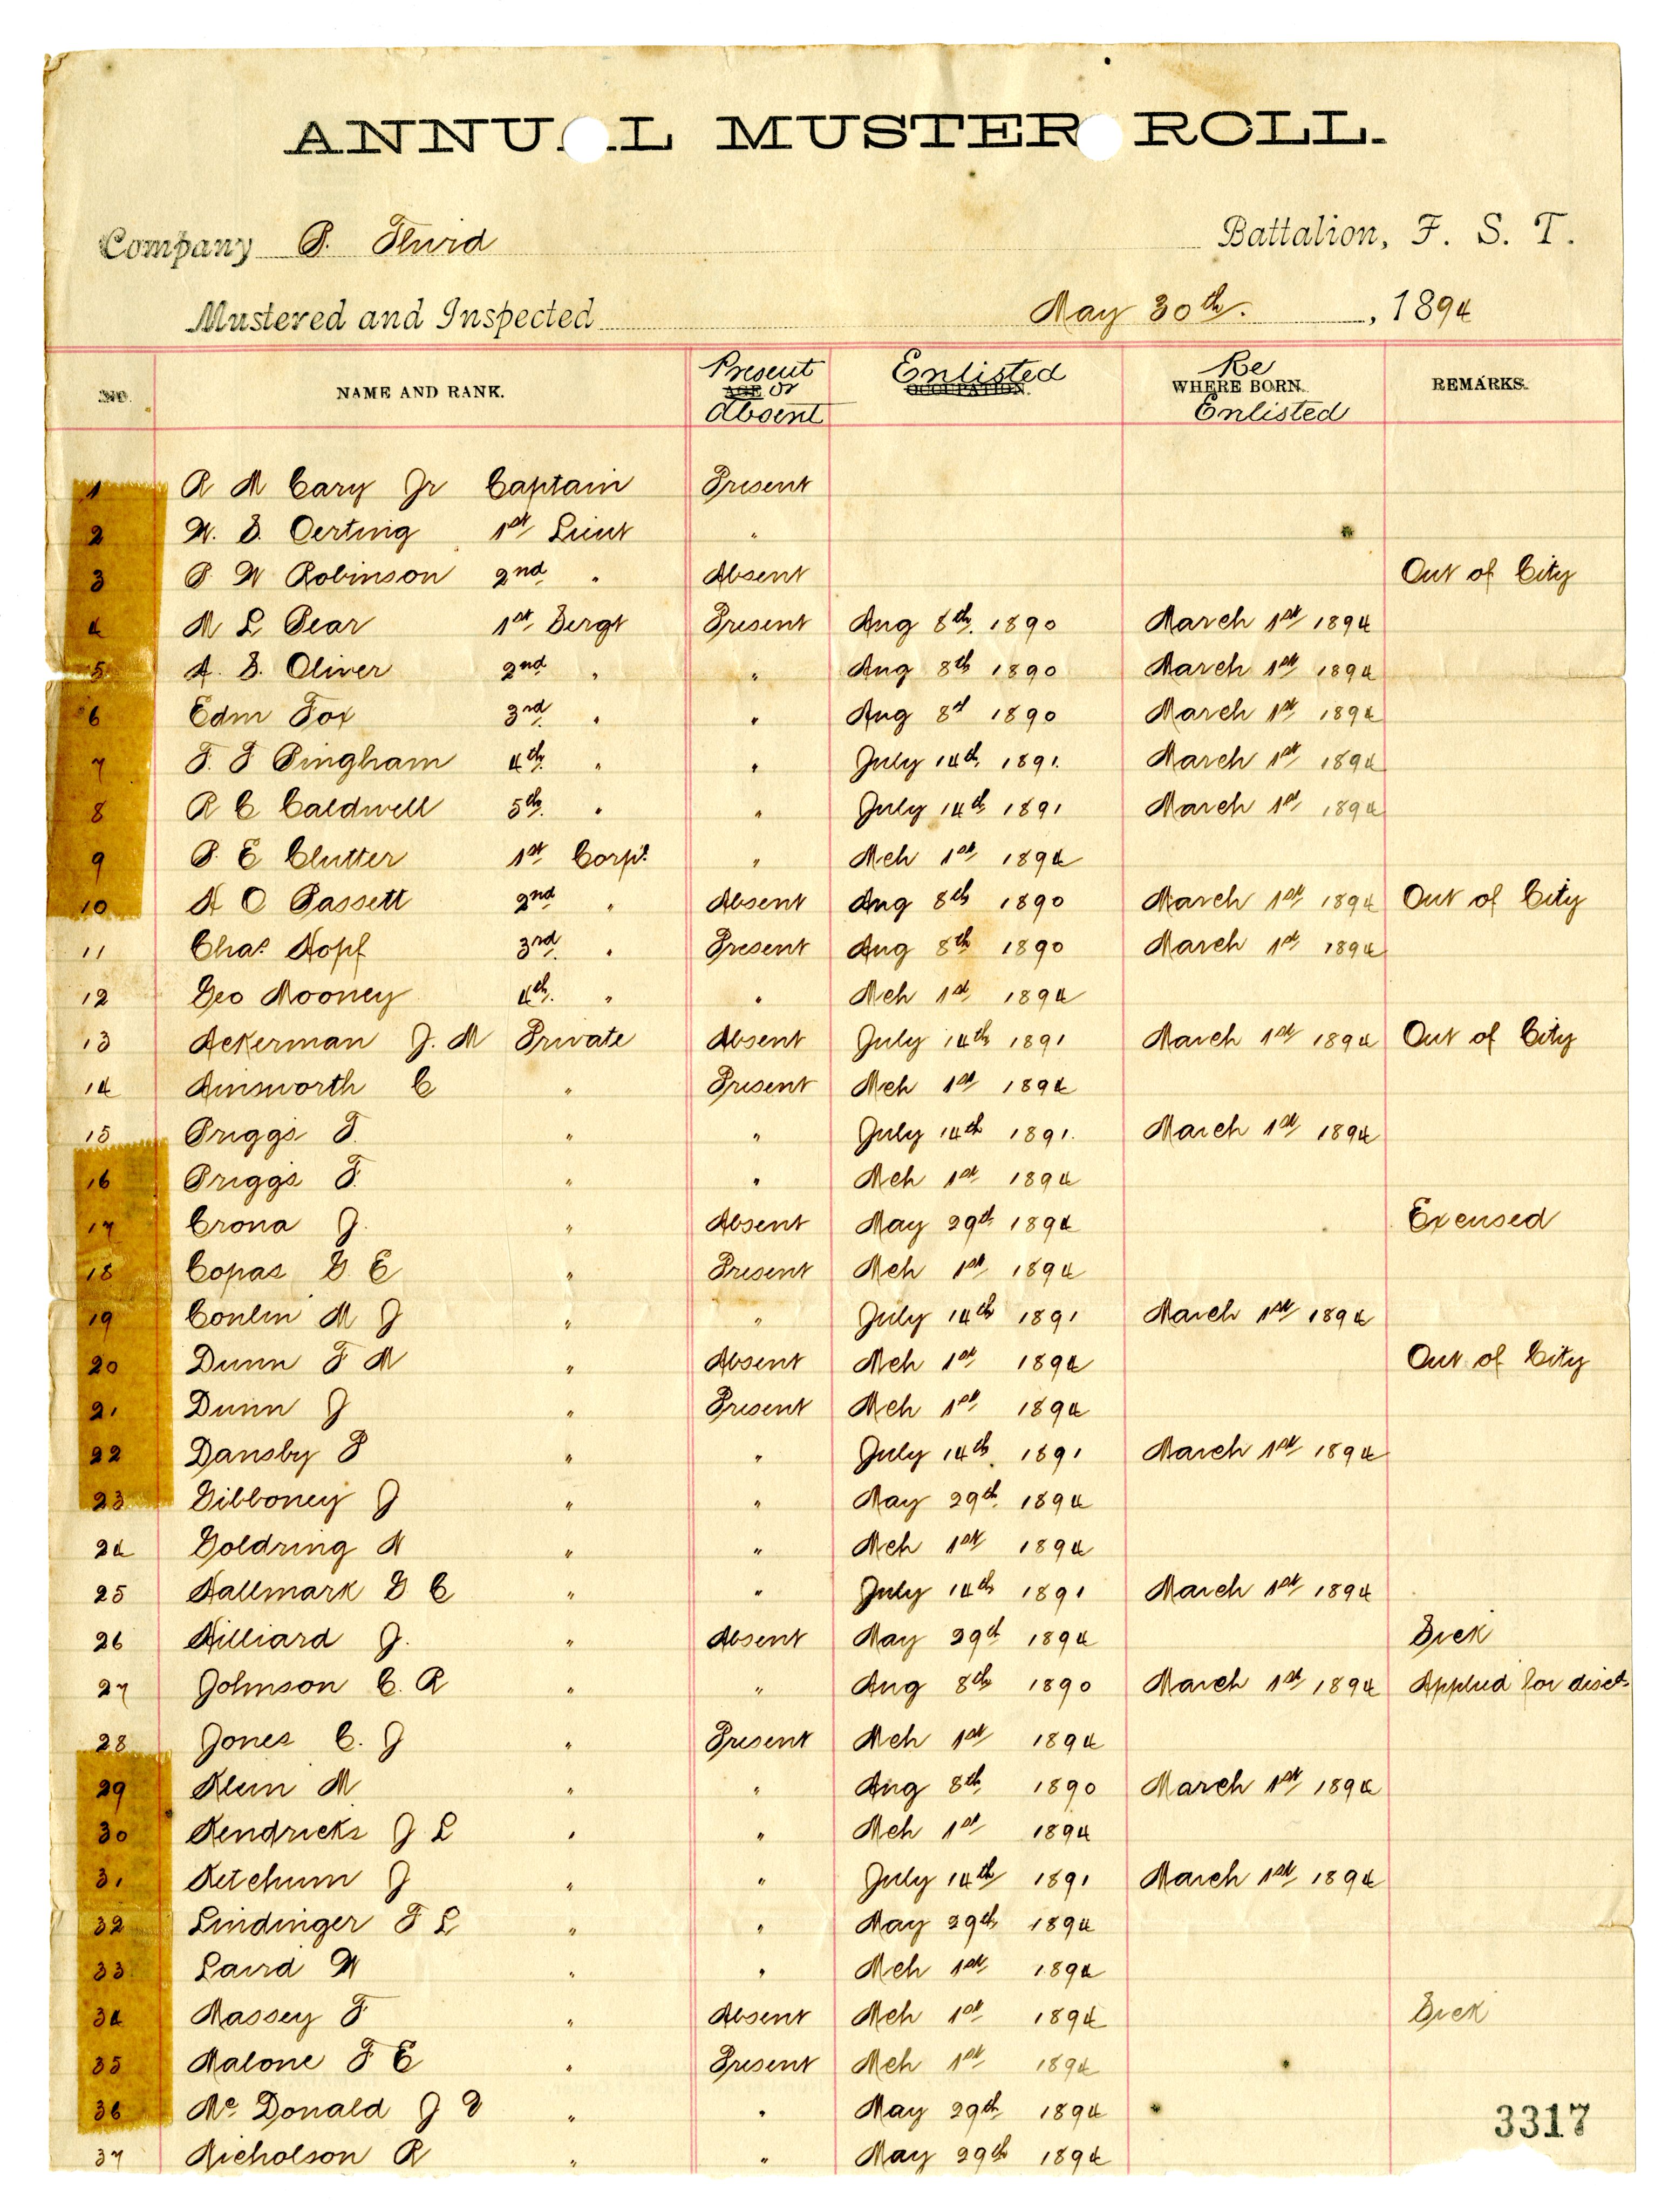 ANNUAL MUSTER ROLL.
Company B. Third Battalion, F. S. T.
Mustered and Inspected May 30th. , 1894
No. NAME AND RANK. Present AGE or Absent Enlisted OCCUPATION. Re WHERE BORN. Enlisted REMARKS.
1 R M Cary Jr Captain Present
2 W. S. Oerting 1st Lieut "
3 B W Robinson 2nd " Absent Out of City
4 M L Bear 1st Sergt Present Aug 8th. 1890 March 1st 1894
5 A. S. Oliver 2nd " " Aug 8th 1890 March 1st 1894
6 Edm Fox 3rd " " Aug 8th 1890 March 1st 1894
7 F. F Bingham 4th. " " July 14th, 1891. March 1st 1894
8 R C Caldwell 5th. " " July 14th 1891 March 1st 1894
9 B. E Clutter 1st Corpl. " Mch 1st 1894
10 H O Bassett 2nd " Absent Aug 8th 1890 March 1st 1894 Out of City
11 Chas. Hopf 3rd. " Present Aug 8th 1890 March 1st 1894
12 Geo Mooney 4th. " " Mch 1st 1894
13 Ackerman J. M Private Absent July 14th 1891 March 1st 1894 Out of City
14 Ainsworth C " Present Mch 1st 1894
15 Briggs F. " " July 14th 1891. March 1st 1894
16 Briggs T. " " Mch 1st 1894
17 Crona J. " Absent May 29th 1894 Excused
18 Copas G E " Present Mch 1st 1894
19 Conlin M J " " July 14th 1891 March 1st 1894
20 Dunn F M " Absent Mch 1st 1894 Out of City
21 Dunn J " Present Mch 1st 1894
22 Dansby B " " July 14th. 1891 March 1st 1894
23 Gibboney J " " May 29th 1894
24 Goldring N " " Mch 1st 1894
25 Hallmark G C " " July 14th 1891 March 1st 1894
26 Hilliard J. " Absent May 29th 1894 Sick
27 Johnson C. R " " Aug 8th 1890 March 1st 1894 Applied for disch
28 Jones C. J " Present Mch 1st 1894
29 Klein M " " Aug 8th 1890 March 1st 1894
30 Kendricks J L " " Mch 1st 1894
31 Ketchum J " " July 14th 1891 March 1st 1894
32 Lindinger F L " " May 29th 1894
33 Laird W " " Mch 1st 1894
34 Massey F " Absent Mch 1st 1894 Sick
35 Malone F E " Present Mch 1st 1894
36 Mc Donald J " " May 29th 1894
37 Nicholson R " " May 29th 1894
3317